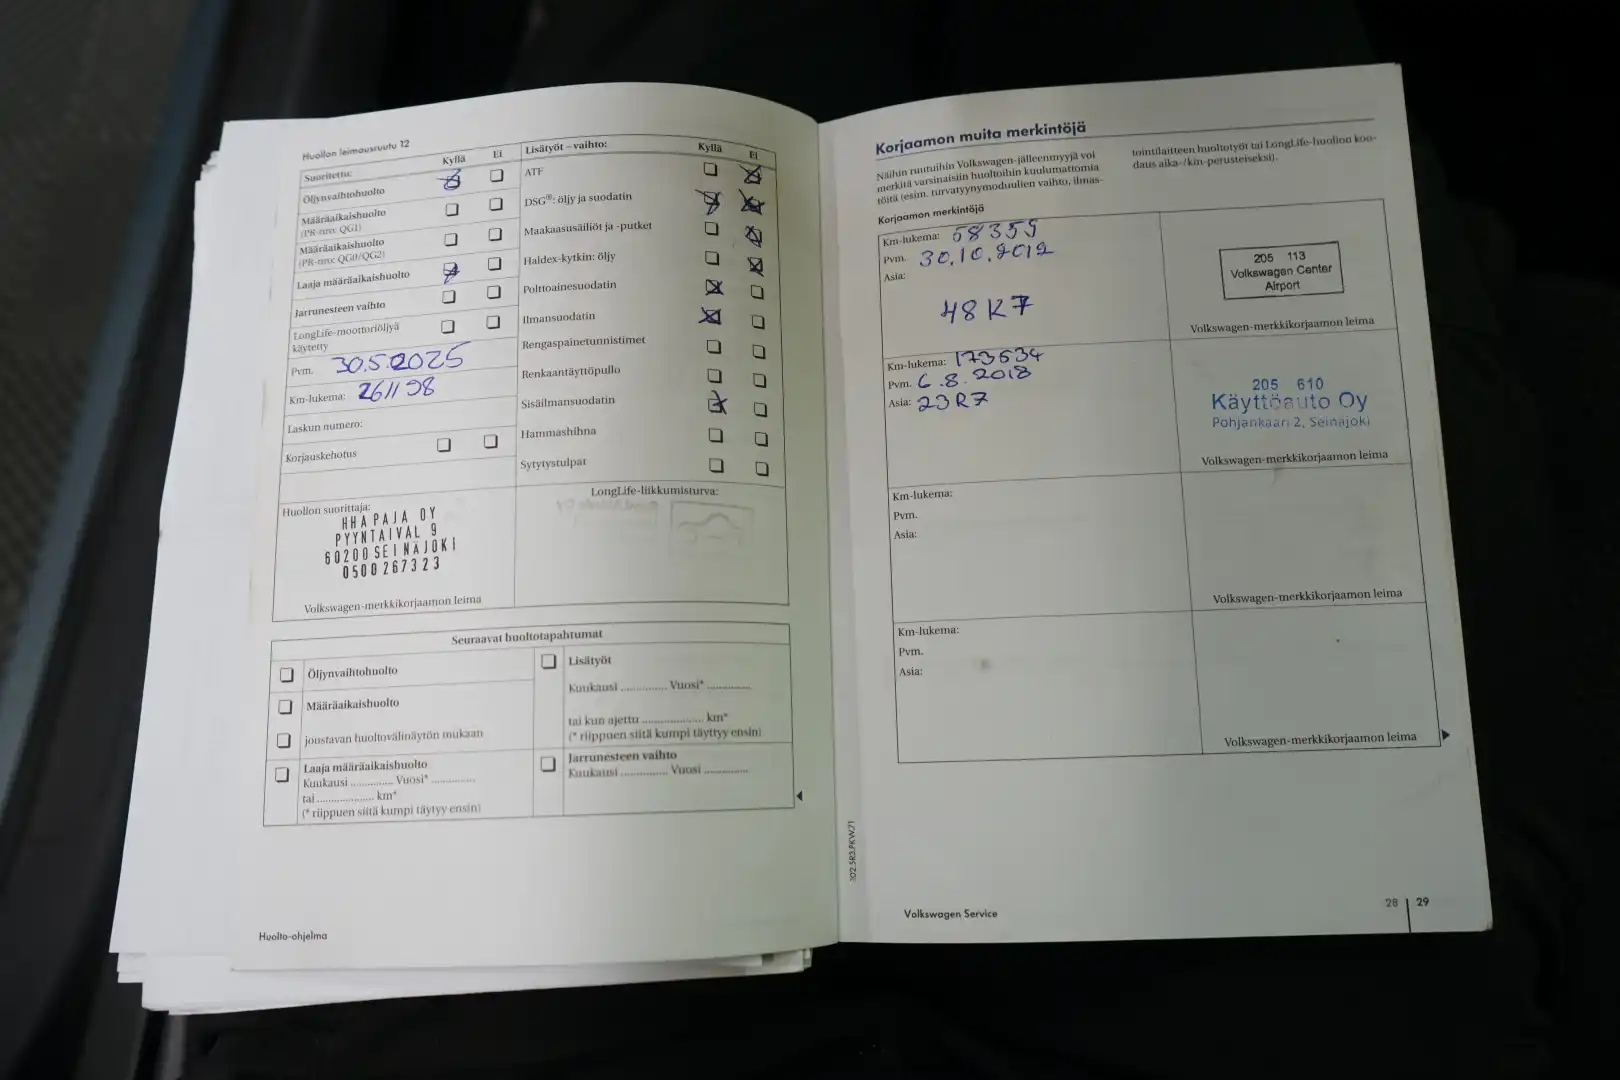 Huollon leimausruutu 12
Suoritettu:
Kyllä
Ei
Öljynvaihtohuolto
Määräaikaishuolto
(PR-nro: QG1)
Määräaikaishuolto
(PR-nro: QG0/QG2)
Laaja määräaikaishuolto
Jarrunesteen vaihto
LongLife-moottoriöljyä
käytetty
Pvm. 30.5.2025
Km-lukema: 261198
Laskun numero:
Korjauskehotus
Lisätyöt – vaihto:
Kyllä
Ei
ATF
DSG®: öljy ja suodatin
Maakaasusäiliöt ja -putket
Haldex-kytkin: öljy
Polttoainesuodatin
Ilmansuodatin
Rengaspainetunnistimet
Renkaantäyttöpullo
Sisäilmansuodatin
Hammashihna
Sytytystulpat
Huollon suorittaja:
HHA PAJA OY
PYYNTAIVAL 9
60200 SEINÄJOKI
0500 267323
Volkswagen-merkkikorjaamon leima
LongLife-liikkumisturva:
Seuraavat huoltotapahtumat
Öljynvaihtohuolto
Määräaikaishuolto
joustavan huoltovälinäytön mukaan
Laaja määräaikaishuolto
Kuukausi .............. Vuosi* ..............
tai .................... km*
(* riippuen siitä kumpi täytyy ensin)
Lisätyöt
Kuukausi .............. Vuosi* ..............
tai kun ajettu .................... km*
(* riippuen siitä kumpi täyttyy ensin)
Jarrunesteen vaihto
Kuukausi .............. Vuosi ..............
Huolto-ohjelma
Korjaamon muita merkintöjä
Näihin ruutuihin Volkswagen-jälleenmyyjä voi
merkitä varsinaisiin huoltoihin kuulumattomia
töitä (esim. turvatyynymoduulien vaihto, ilmas-
tointilaitteen huoltotyöt tai LongLife-huollon koo-
daus aika-/km-perusteiseksi).
Korjaamon merkintöjä
Km-lukema: 58355
Pvm. 30.10.2012
Asia:
48K7
205 113
Volkswagen Center
Airport
Volkswagen-merkkikorjaamon leima
Km-lukema: 173634
Pvm. 6.8.2018
Asia: 23R7
205 610
Käyttöauto Oy
Pohjankaari 2, Seinäjoki
Volkswagen-merkkikorjaamon leima
Km-lukema:
Pvm.
Asia:
Volkswagen-merkkikorjaamon leima
Km-lukema:
Pvm.
Asia:
Volkswagen-merkkikorjaamon leima
Volkswagen Service
28
29